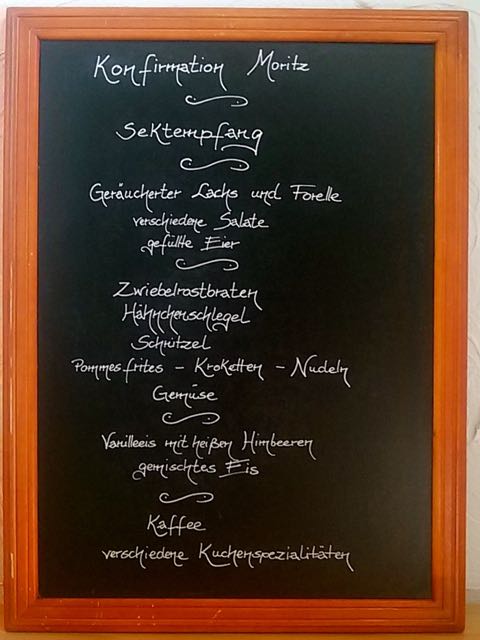 Konfirmation Moritz
Sektempfang
Geräucherter Lachs und Forelle
verschiedene Salate
gefüllte Eier
Zwiebelrostbraten
Hähnchenschlegel
Schnitzel
Pommes frites - Kroketten - Nudeln
Gemüse
Vanilleeis mit heißen Himbeeren
gemischtes Eis
Kaffee
verschiedene Kuchenspezialitäten